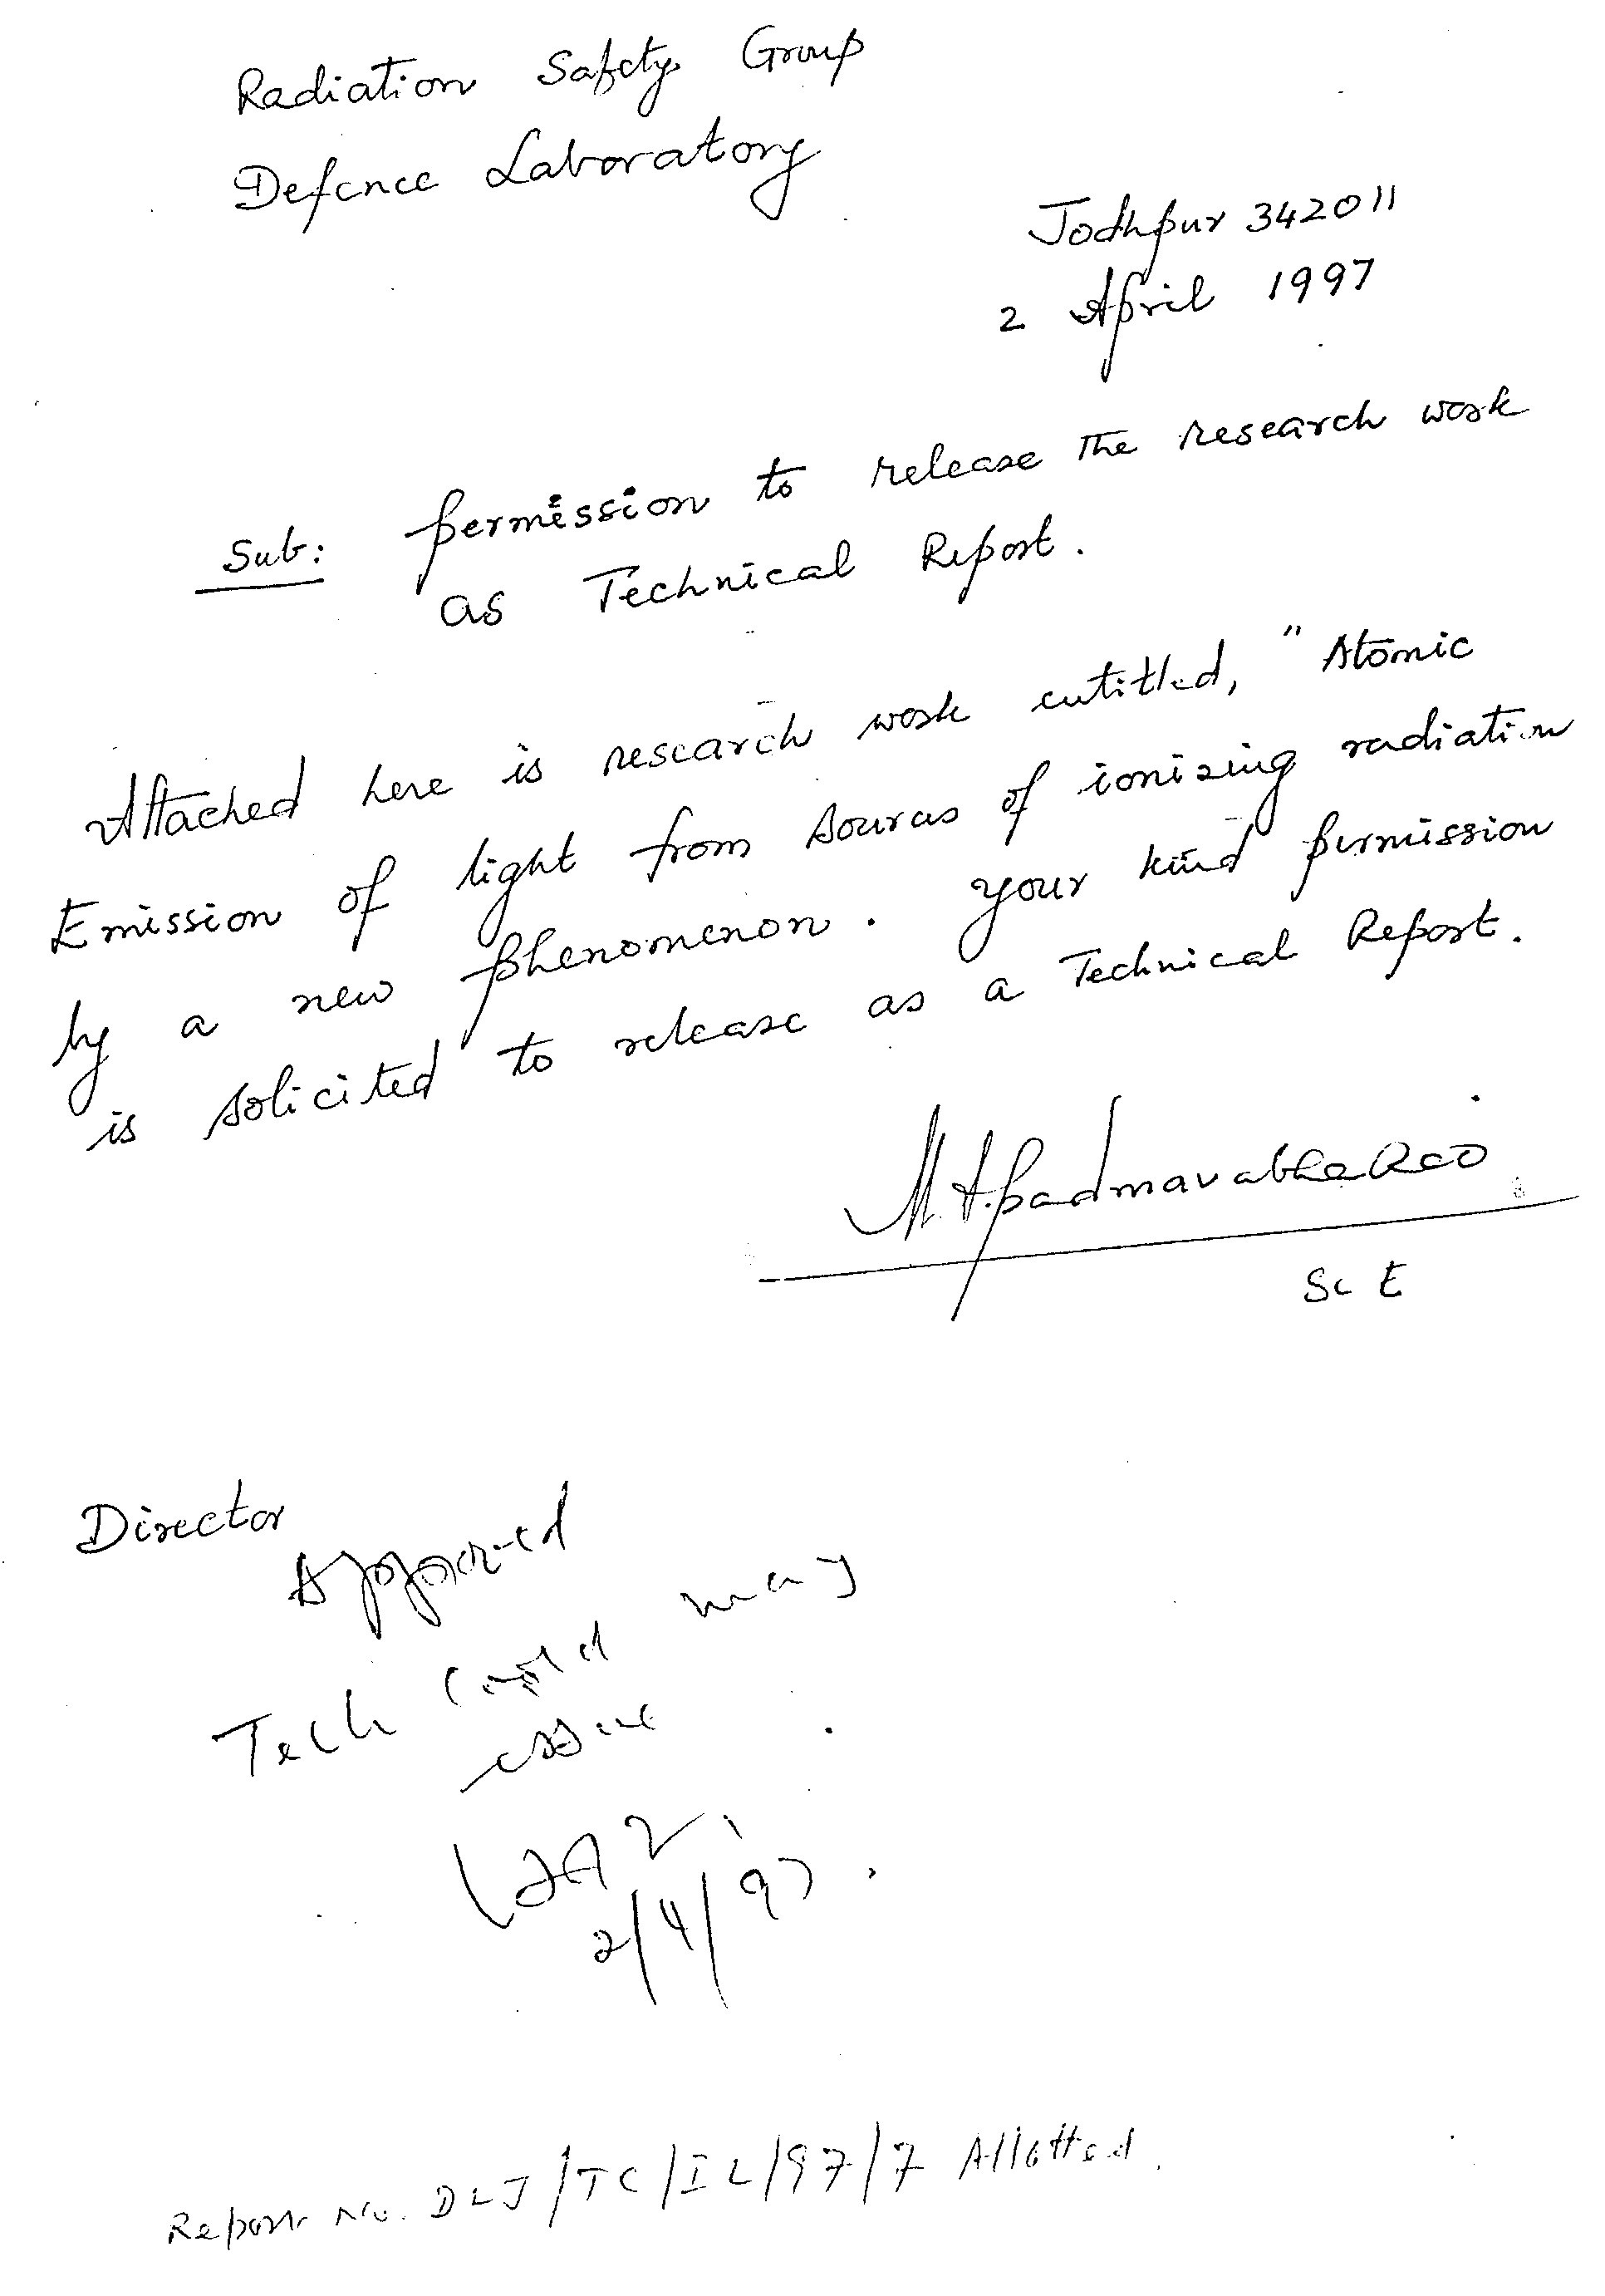 Radiation Safety Group
Defence Laboratory
Jodhpur 342011
2 April 1997
Sub: permission to release the research work
as Technical Report.
Attached here is research work entitled, "Atomic
Emission of light from sources of ionizing radiation
by a new phenomenon. Your kind permission
is solicited to release as a Technical Report.
M.A. Padmanabha Rao
Sc E
Director
Approved
Tech may
issue
2/4/97.
Report No. DLJ/TC/IL/97/7 Allotted.